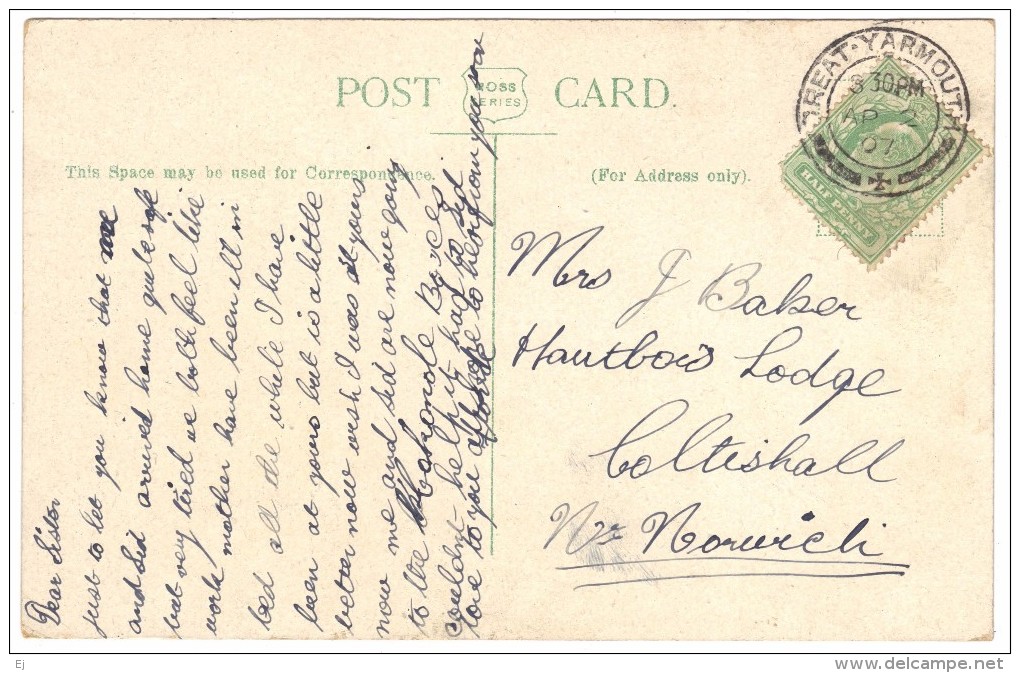 POST CARD
ROSS
SERIES
This Space may be used for Correspondence.
(For Address only).
GREAT·YARMOUTH
8 30PM
AP 2
07
HALF PENNY
Dear Sister
just to let you know that me
and Sid arrived home quite safe
but very tired us both feel like
work mother have been ill in
bed all the while I have
been at yours but is a little
better now wish I was at yours
now me and sid are now going
to the
couldent help it had to
love to you all hope to hear from you soon
Mrs J Baker
Hautbois Lodge
Coltishall
Nr Norwich
Ej
delcampe.net